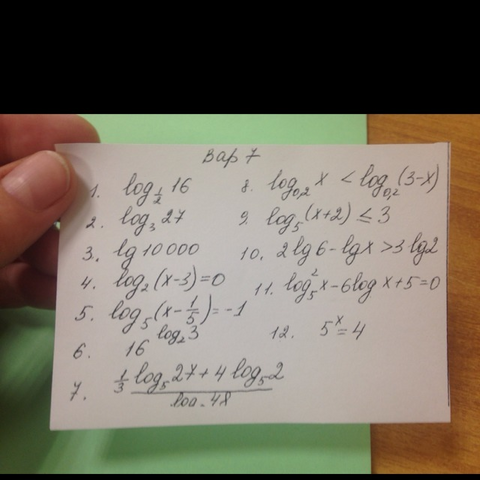 Вар 7
1. log_{1/2} 16
2. log_3 27
3. lg 10 000
4. log_2 (x-3)=0
5. log_5 (x-1/5)=-1
6. 16^{log_2 3}
7. (1/3 log_5 27+4 log_5 2)/(log_5 48)
8. log_{0,2} x < log_{0,2} (3-x)
9. log_5 (x+2) ≤ 3
10. 2 lg 6 - lg x > 3 lg 2
11. log_5^2 x - 6 log x + 5 = 0
12. 5^x = 4